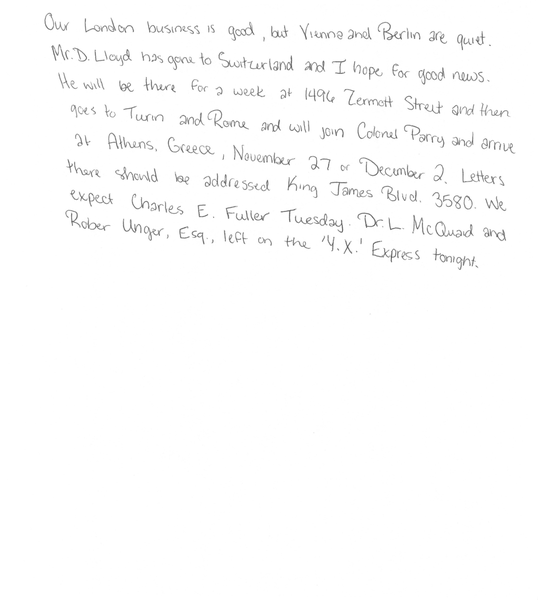 Our London business is good, but Vienne and Berlin are quiet.
Mr. D. Lloyd has gone to Switzerland and I hope for good news.
He will be there for a week at 1496 Zermott Street and then
goes to Turin and Rome and will join Colonel Parry and arrive
at Athens, Greece, November 27 or December 2. Letters
there should be addressed King James Blvd. 3580. We
expect Charles E. Fuller Tuesday. Dr. L. McQuaid and
Rober Unger, Esq., left on the 'Y.X.' Express tonight.